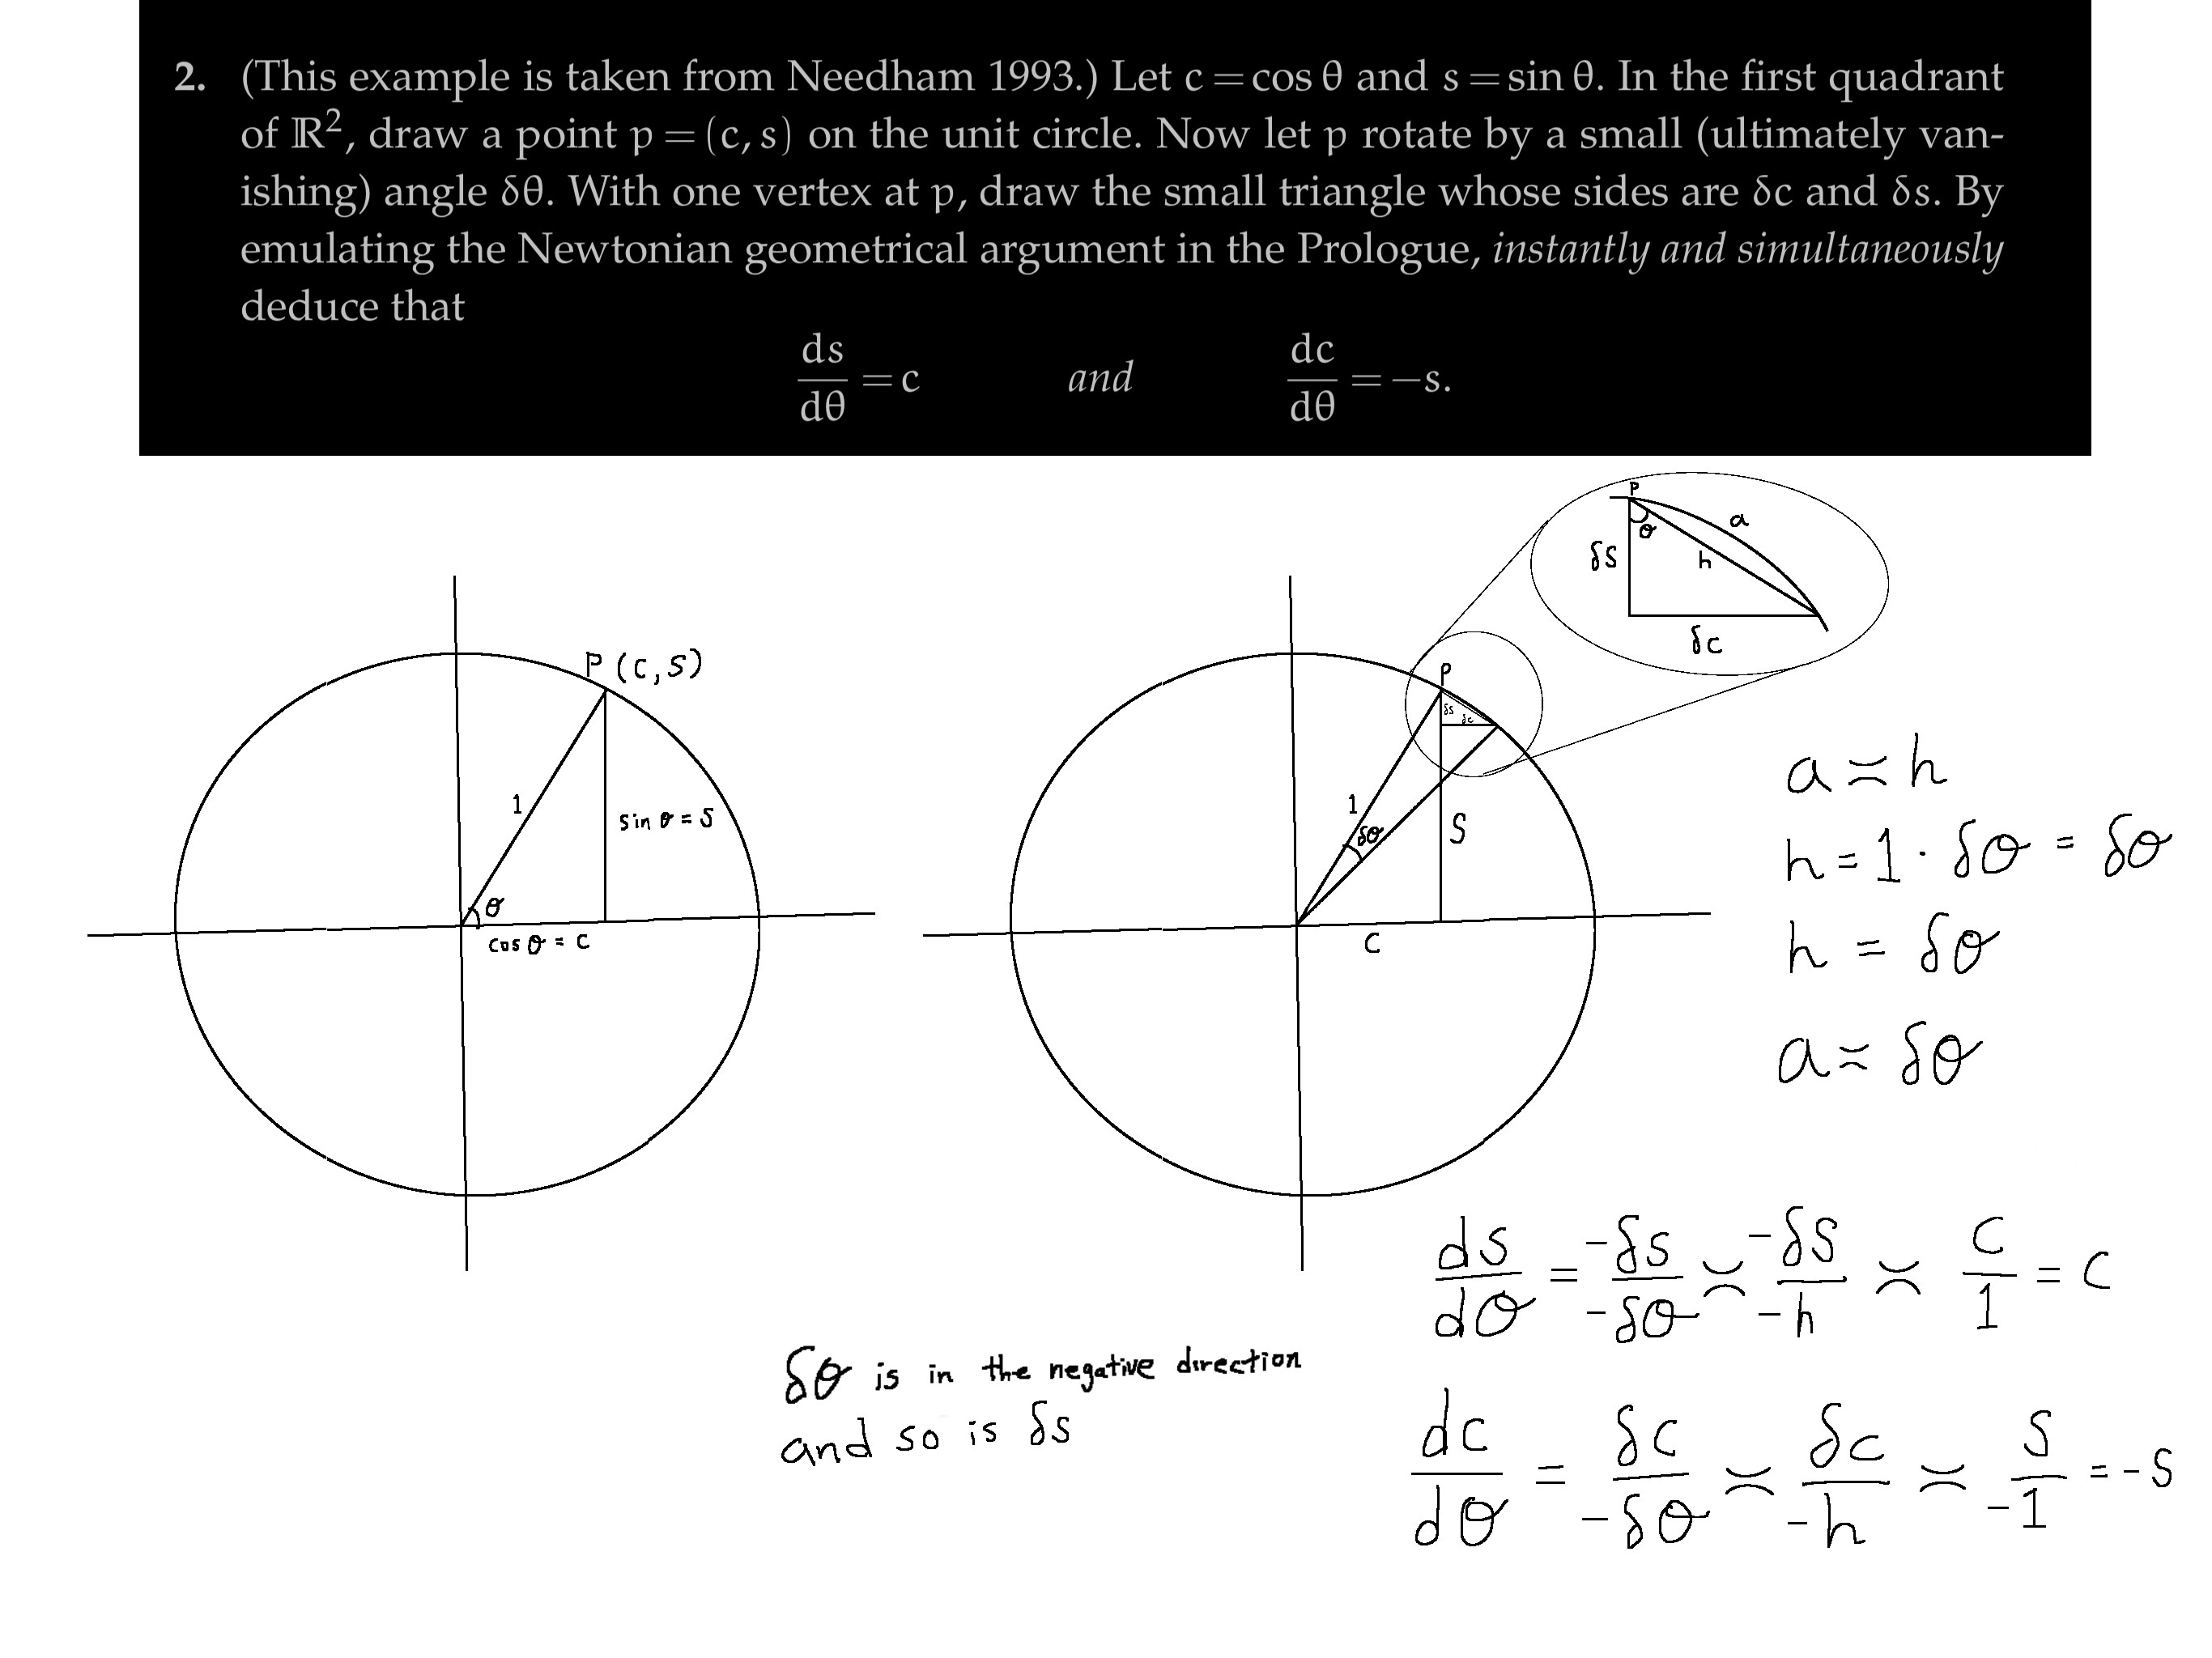 2. (This example is taken from Needham 1993.) Let c = cos θ and s = sin θ. In the first quadrant
of ℝ², draw a point p = (c, s) on the unit circle. Now let p rotate by a small (ultimately van-
ishing) angle δθ. With one vertex at p, draw the small triangle whose sides are δc and δs. By
emulating the Newtonian geometrical argument in the Prologue, instantly and simultaneously
deduce that
ds/dθ = c and dc/dθ = −s.
P (c, s)
1
sin θ = s
θ
cos θ = c
P
δs
δc
1
δθ
S
C
P
a
θ
δs
h
δc
a ≍ h
h = 1 · δθ = δθ
h = δθ
a ≍ δθ
ds/dθ = -δs/-δθ ≍ -δs/-h ≍ c/1 = c
δθ is in the negative direction
and so is δs
dc/dθ = δc/-δθ ≍ δc/-h ≍ s/-1 = -s